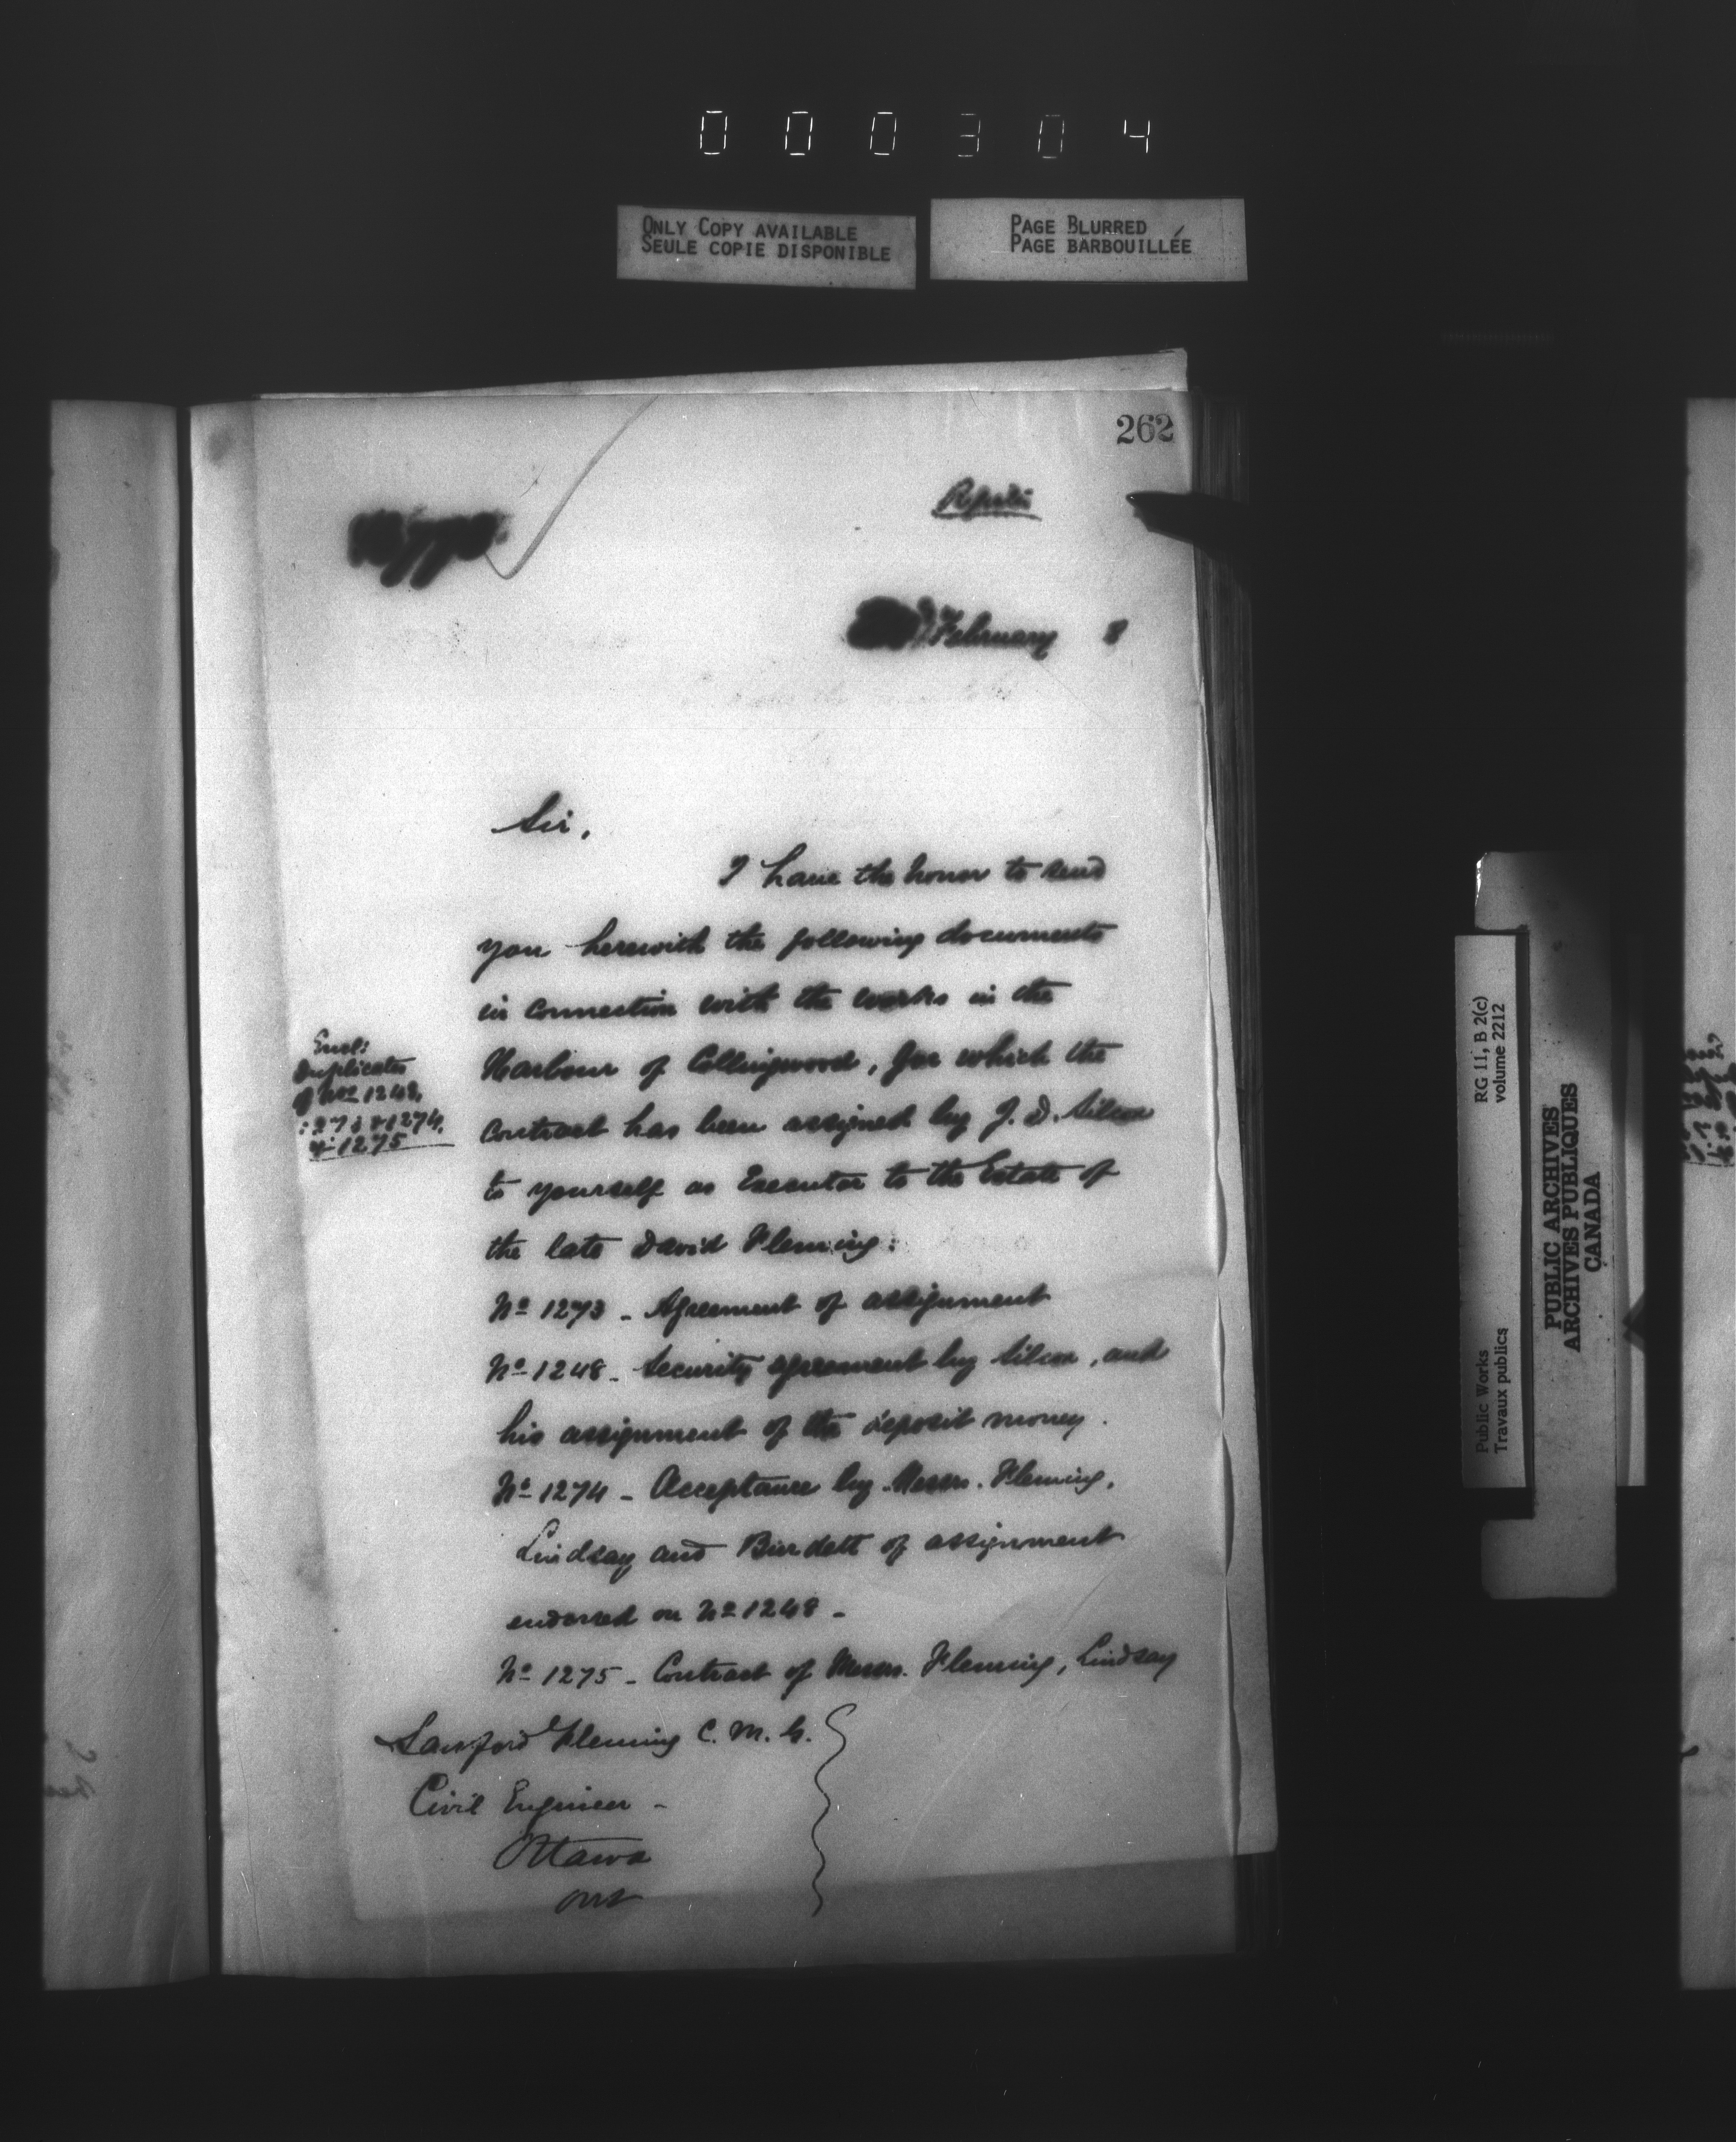 000304
ONLY COPY AVAILABLE
SEULE COPIE DISPONIBLE
PAGE BLURRED
PAGE BARBOUILLÉE
262
February 8
Sir,
I have the honor to send
you herewith the following documents
in connection with the works in the
Harbour of Collingwood, for which the
contract has been assigned by J. D. Silcox
to yourself as Executor to the Estate of
the late David Fleming:
No 1273 - Agreement of assignment
No 1248 - Security agreement by Silcox, and
his assignment of the deposit money.
No 1274 - Acceptance by Messrs. Fleming,
Lindsay and Burdett of assignment
endorsed on No 1248 -
No 1275 - Contract of Messrs. Fleming, Lindsay
Encl:
Duplicates
of Nos 1248,
1273 & 1274,
& 1275
Sanford Fleming C. M. G.
Civil Engineer -
Ottawa
Ont
RG 11, B 2(c)
volume 2212
Public Works
Travaux publics
PUBLIC ARCHIVES
ARCHIVES PUBLIQUES
CANADA